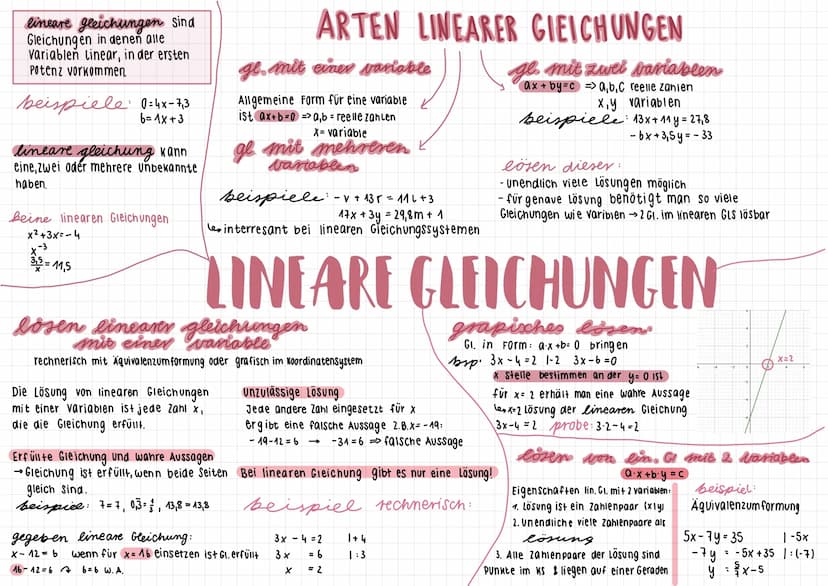 lineare gleichungen sind
Gleichungen in denen alle
Variablen linear, in der ersten
Potenz vorkommen
beispiele: 0=4x-7,3
6=1x+3
lineare gleichung kann
eine, zwei oder mehrere unbekannte
haben.
keine linearen Gleichungen
x²+3x=-4
x⁻³
3,5/x = 11,5
ARTEN LINEARER GLEICHUNGEN
gl. mit einer variable
Allgemeine Form für eine variable
ist ax+b=0 ⇒ a,b = reelle zahlen
x= variable
gl mit mehreren
variablen
beispiele: -v + 13r = 11l+3
17x + 3y = 29,8m + 1
↳ interresant bei linearen Gleichungssystemen
gl. mit zwei variablen
ax + by=c ⇒ a,b,c reelle zahlen
x,y variablen
beispiele: 13x+11y=27,8
-6x+3,5y=-33
lösen dieser:
- unendlich viele Lösungen möglich
- für genaue Lösung benötigt man so viele
Gleichungen wie Variblen → 2 Gl. im linearen GLS lösbar
LINEARE GLEICHUNGEN
lösen linearer gleichungen
mit einer variable
rechnerisch mit Äquivalenzumformung oder grafisch im Koordinatensystem
Die Lösung von linearen Gleichungen
mit einer Variablen ist jede Zahl x,
die die Gleichung erfüllt.
Erfüllte Gleichung und wahre Aussagen
→ Gleichung ist erfüllt, wenn beide Seiten
gleich sind.
beispiel: 7=7, 0,3̅=1/3, 13,8=13,8
gegeben lineare Gleichung:
x-12=6 wenn für x=16 einsetzen ist Gl. erfüllt
16-12=6 → 6=6 w.A.
unzulässige Lösung
Jede andere Zahl eingesetzt für x
ergibt eine falsche Aussage z.B. x=-19:
-19-12=6 → -31=6 ⇒ falsche Aussage
Bei linearen Gleichung gibt es nur eine lösung!
beispiel rechnerisch:
3x-4=2 |+4
3x =6 |:3
x =2
grapisches lösen:
Gl. in Form: a·x+b=0 bringen
bsp. 3x-4=2 |-2 3x-6=0
x Stelle bestimmen an der y=0 ist
für x=2 erhält man eine wahre Aussage
↳ x=2 lösung der linearen Gleichung
3x-4=2 probe: 3·2-4=2
x=2
lösen von lin. Gl mit 2 variablen
a·x+b·y=c
Eigenschaften lin. Gl. mit 2 variablen:
1. Lösung ist ein Zahlenpaar (x|y)
2. unendliche viele Zahlenpaare als
lösung
3. Alle Zahlenpaare der Lösung sind
Punkte im KS & liegen auf einer Geraden
beispiel:
Äquivalenzumformung
5x-7y=35 |-5x
-7y = -5x+35 |:(-7)
y = 5/7x-5